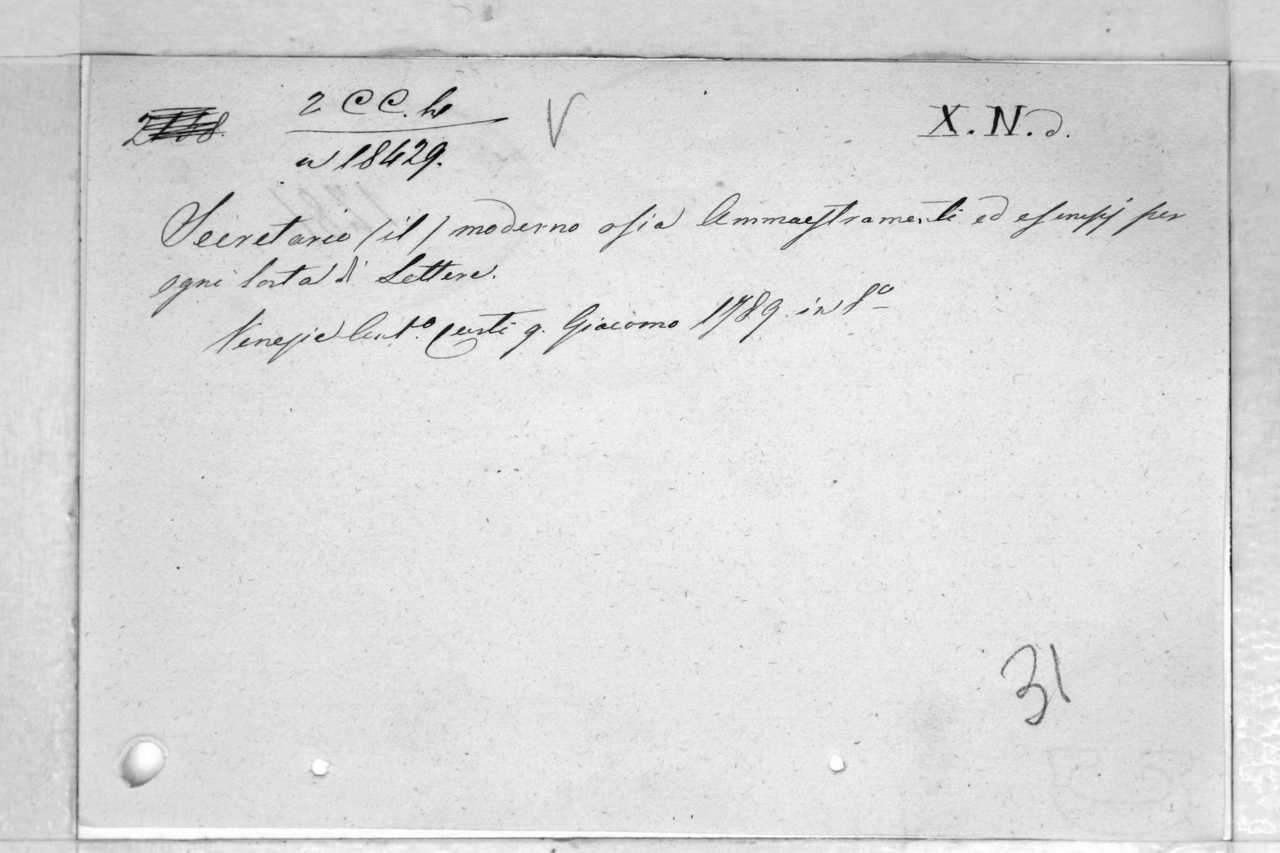 2 CC. h
n 18429.
V
X. N. d.
Secretario (il) moderno osia Ammaestramenti ed esempj per
ogni sorta di Lettere.
Venezia Ant.º Curti q. Giacomo 1789. in 8º
31